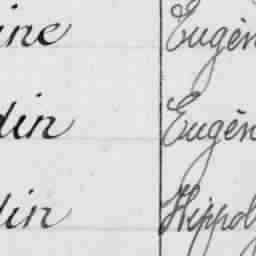 ine Eugèn
din Eugèn
din Hippoly